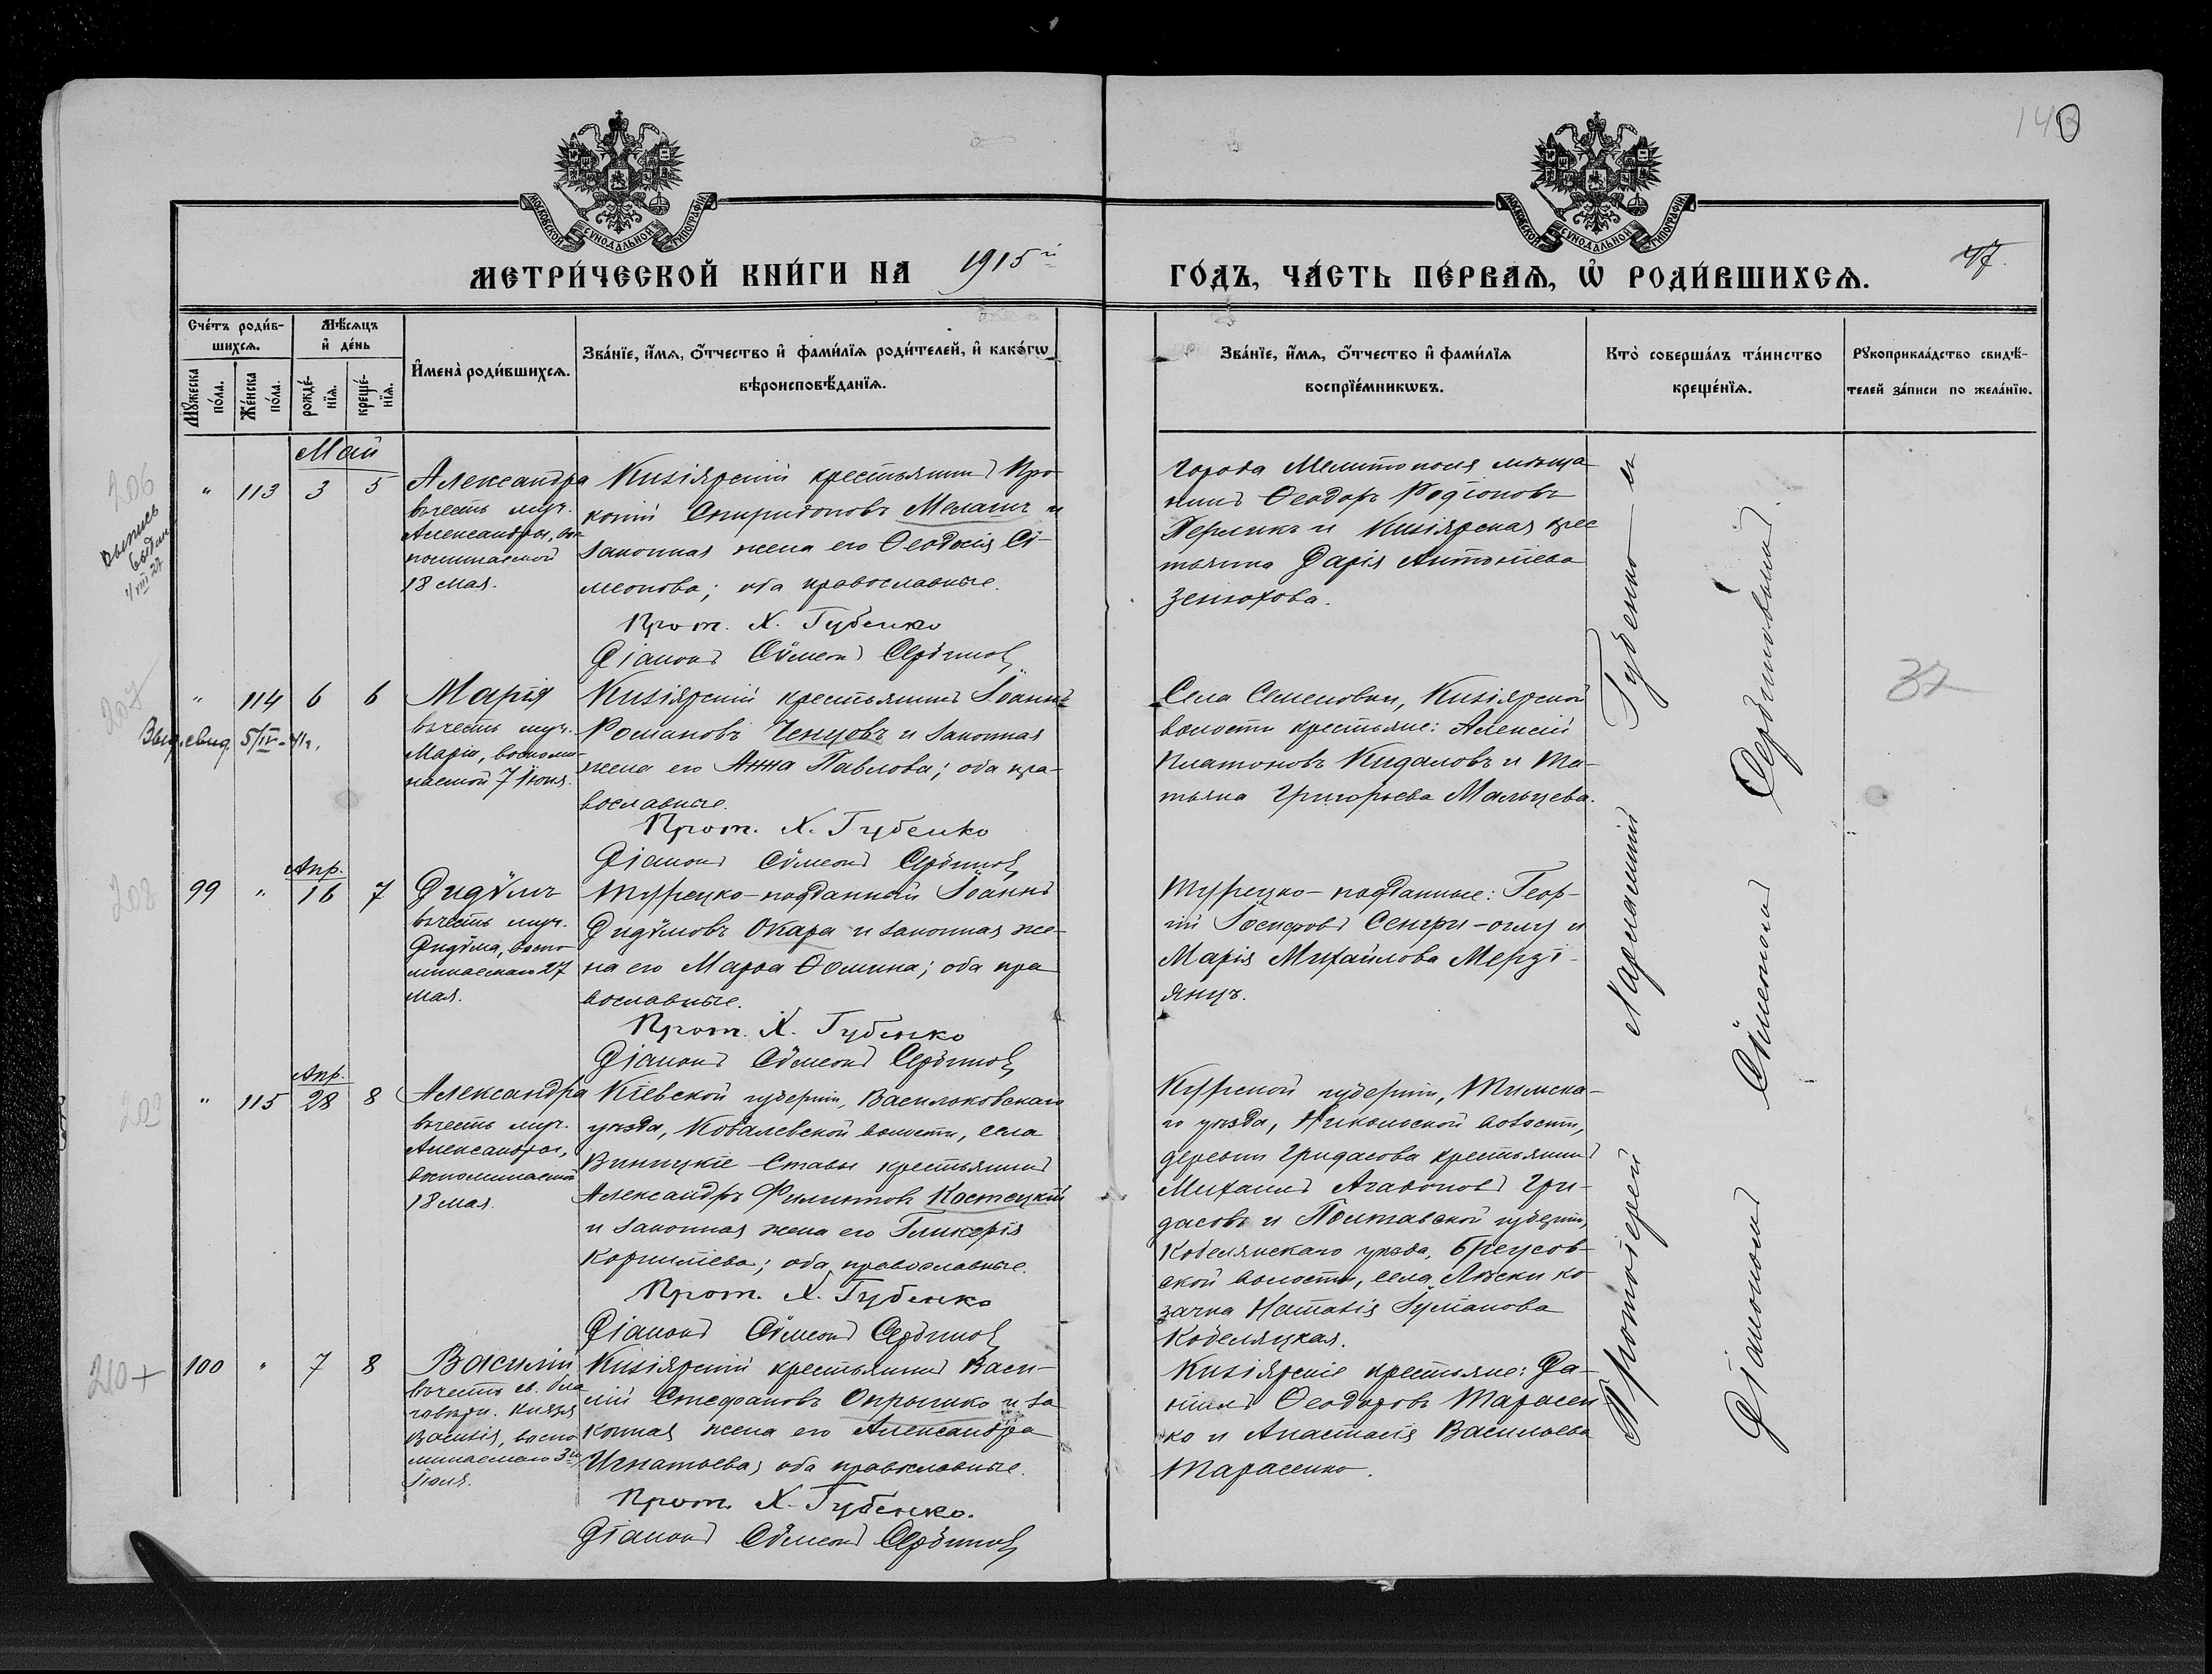 140
МОСКОВСКОЙ СУНОДАЛЬНОЙ ТИПОГРАФІИ
МОСКОВСКОЙ СУНОДАЛЬНОЙ ТИПОГРАФІИ
МЕТРИ́ЧЕСКОЙ КНИ́ГИ НА 1915й ГО́ДЪ, ЧА́СТЬ ПЕ́РВАѦ, Ѡ҆ РОДИ́ВШИХСѦ.
47.
Сче́тъ роди́в-
шихсѧ.
Мѣ́сѧцъ
и҆ де́нь
И҆мена̀ роди́вшихсѧ.
Зва́нїе, и҆́мѧ, ѻ҆́тчество и҆ фами́лїѧ роди́телей, и҆ како́гѡ
вѣроисповѣ́данїѧ.
Зва́нїе, и҆́мѧ, ѻ҆́тчество и҆ фами́лїѧ
воспрїе́мникѡвъ.
Кто̀ соверша́лъ та́инство
креще́нїѧ.
Рꙋкоприкла́дство свидѣ́-
телей за́писи по жела́нїю.
Мꙋ́жеска
по́ла.
Же́нска
по́ла.
рожде́-
нїѧ.
креще́-
нїѧ.
206
выпись
выдан
Май
" 113 3 5
Александра
въ честь муч.
Александры, вс-
поминаемой
18 мая.
Кизіярскій крестьянинъ Про
копій Спиридоновъ Мелашъ и
законная жена его Ѳеодосія Сі-
меонова; оба православные.
Прот. Х. Губенко
Діаконъ Сѵмеонъ Сербиновъ
города Мелитополя мѣща
нинъ Ѳеодоръ Родіоновъ
Перликъ и Кизіярская крес
тьянка Дарія Антоніева
Зензохова.
207
" 114 6 6
Выд. свид. 5/IV-41г.
Марія
въ честь муч.
Маріи, воспоми-
наемой 7 Іюня.
Кизіярскій крестьянинъ Іоаннъ
Романовъ Ченцовъ и законная
жена его Анна Павлова; оба пра-
вославные.
Прот. Х. Губенко
Діаконъ Сѵмеонъ Сербиновъ
Села Семеновки, Кизіярской
волости крестьяне: Алексій
Платоновъ Кидаловъ и Та-
тьяна Григорьева Мальцева.
37
208
Апр.
99 " 16 7
Дидѵмъ
въ честь муч.
Дидѵма, воспо-
минаемаго 27
мая.
Турецко-подданный Іоаннъ
Дидѵмовъ Окара и законная же-
на его Марѳа Ѳомина; оба пра
вославные.
Прот. Х. Губенко
Діаконъ Сѵмеонъ Сербиновъ
Турецко-подданные: Геор-
гій Іосифовъ Сенгри-оглу и
Марія Михайлова Мерзі-
янцъ.
209
Апр.
" 115 28 8
Александра
въ честь муч.
Александры,
воспоминаемой
18 мая.
Кіевской губерніи, Васильковскаго
уѣзда, Ковалевской волости, села
Винницкіе-Ставы крестьянинъ
Александръ Филиповъ Костецкій
и законная жена его Гликерія
Корниліева; оба православные.
Прот. Х. Губенко
Діаконъ Сѵмеонъ Сербиновъ
Курской губерніи, Тимска-
го уѣзда, Никольской волости,
деревни Гридасова крестьянинъ
Михаилъ Агаѳоновъ Гри-
дасовъ и Полтавской губерніи,
Кобелякскаго уѣзда, Бреусов-
ской волости, села Ляски ко
зачка Наталія Іуліанова
Кобеляцкая.
210 +
100 " 7 8
Василій
въ честь св. бла
говѣрн. Князя
Василія, воспо
минаемаго 3го
Іюля.
Кизіярскій крестьянинъ Васи-
лій Стефановъ Опрышко и за
конная жена его Александра
Игнатьева; оба православные.
Прот. Х. Губенко.
Діаконъ Сѵмеонъ Сербиновъ
Кизіярскіе крестьяне: Да-
ніилъ Ѳеодоровъ Тарасен
ко и Анастасія Васильева
Тарасенко.
Протоіерей Харлампій Губенко съ
Діакономъ Сѵмеономъ Сербиновымъ.